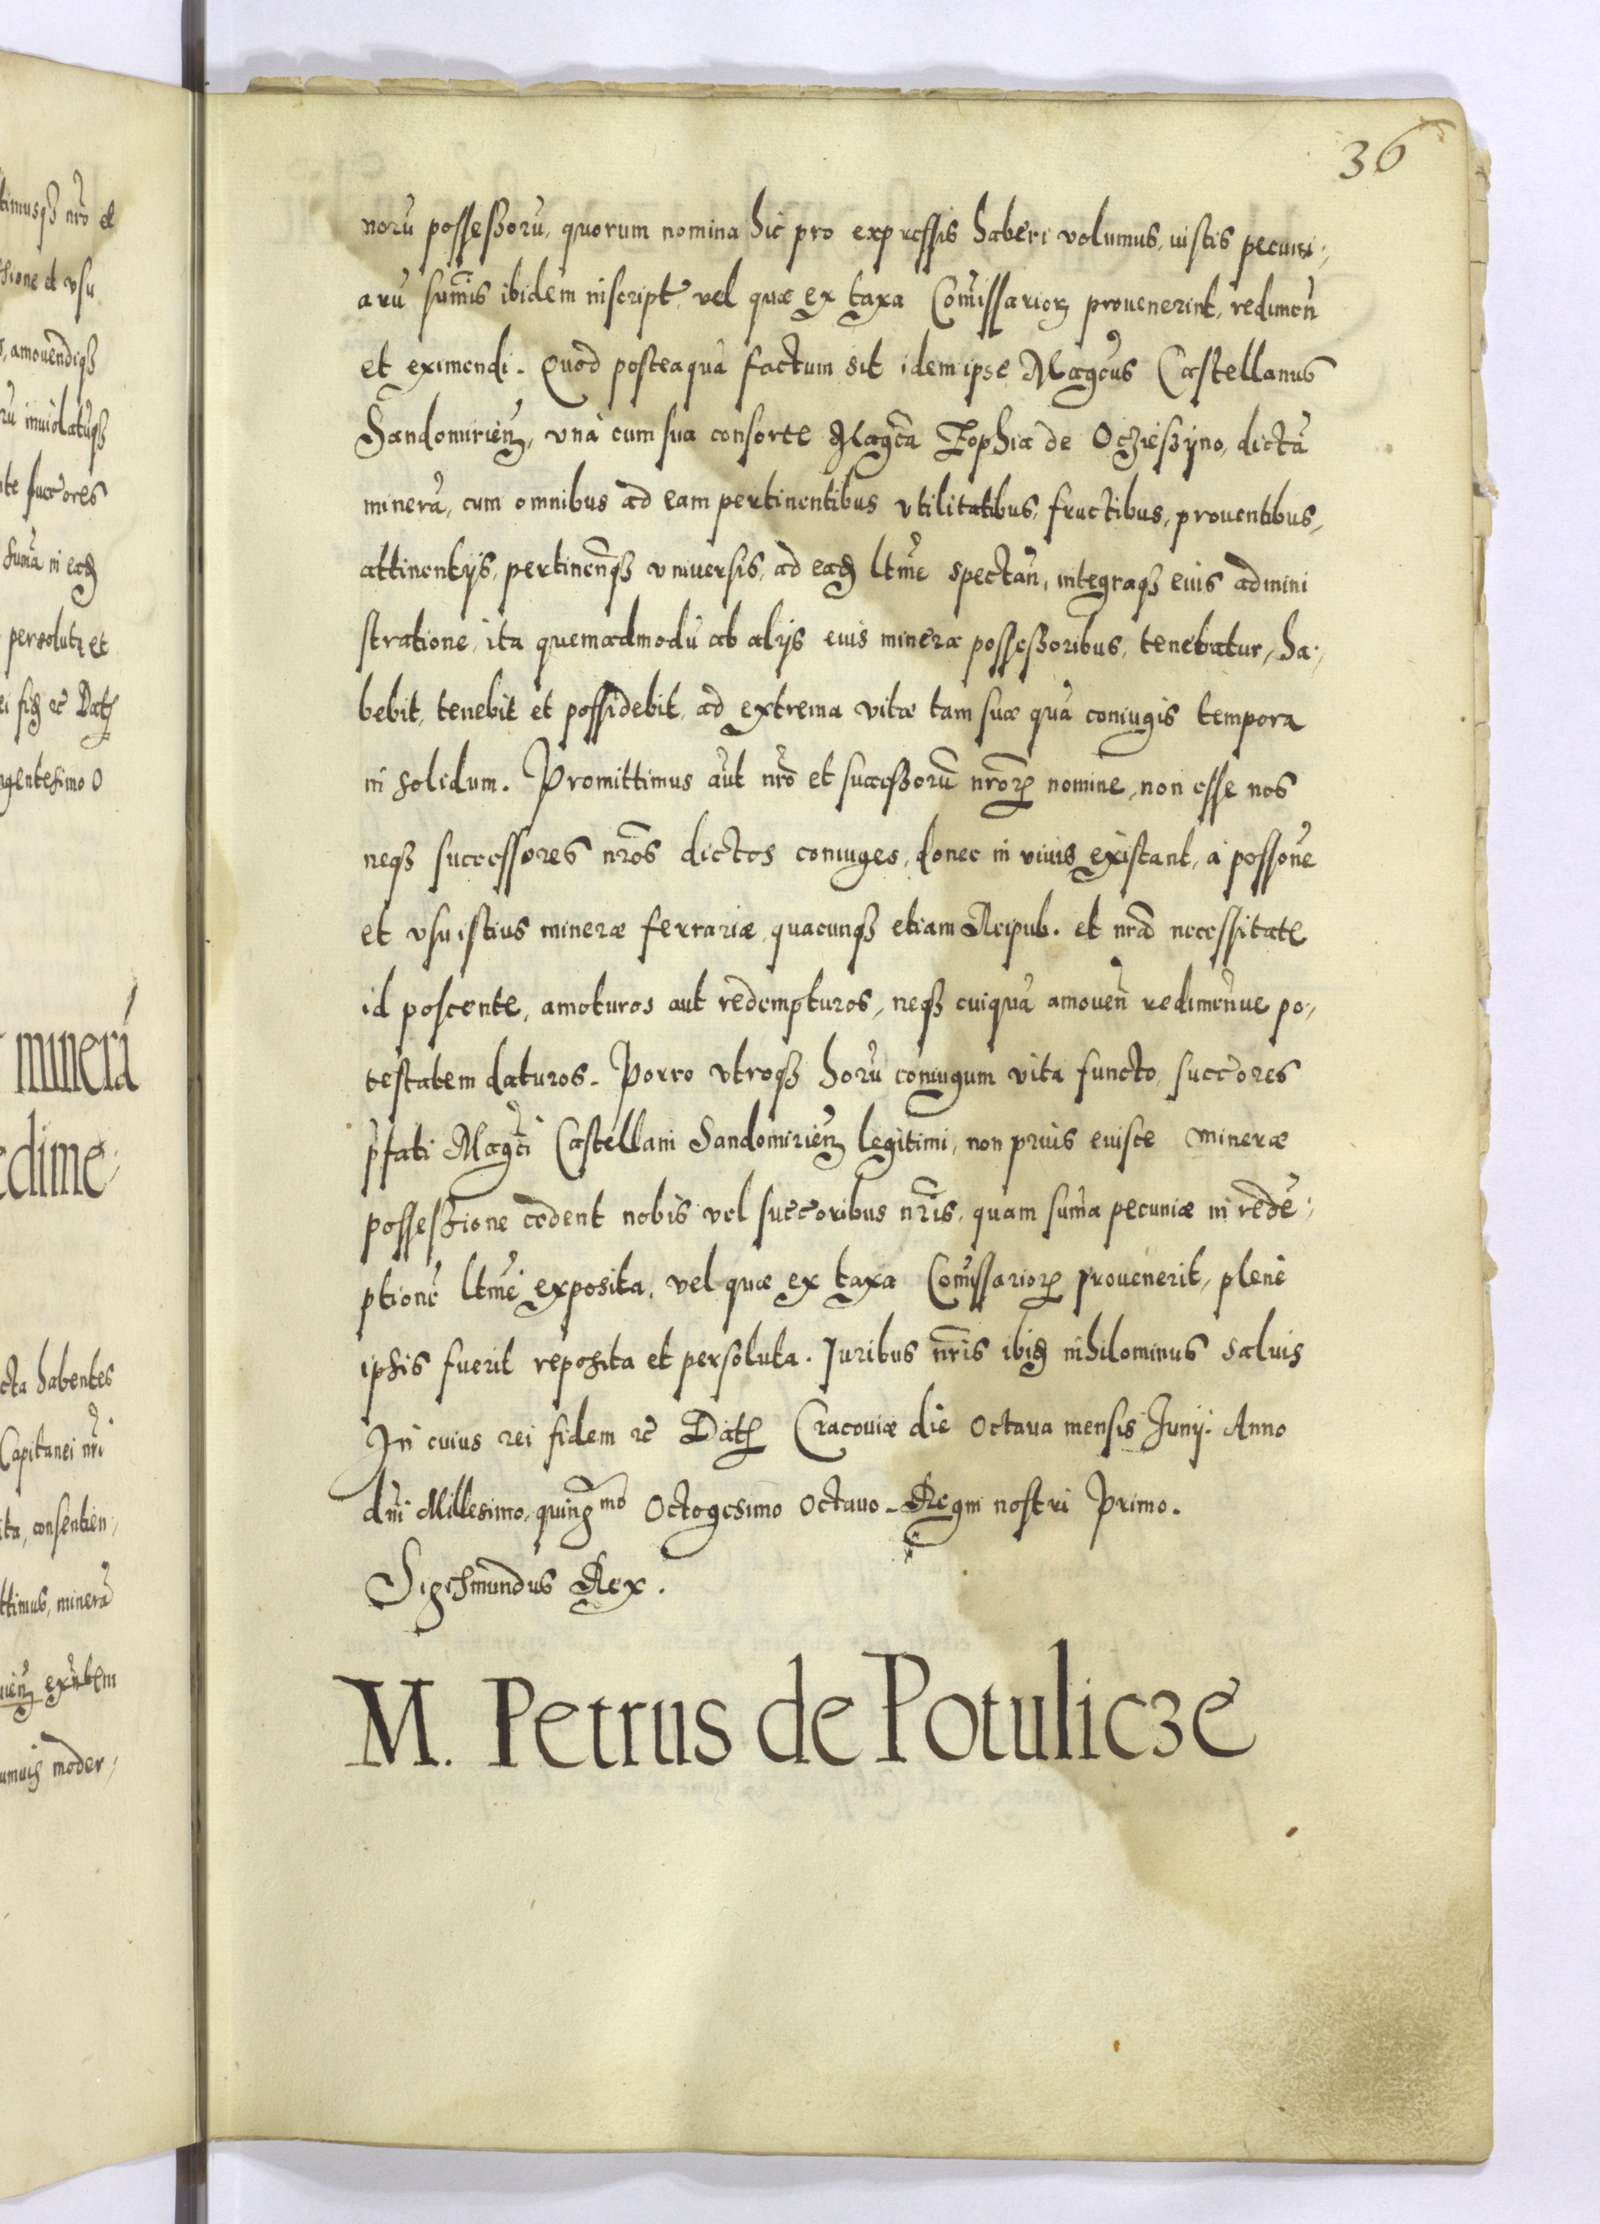 36
norũ possessorũ, quorum nomina hic pro expressis haberi volumus, iustis pecuni-
arũ sum̃is ibidem inscript, vel quæ ex taxa Com̃issarior prouenerint, redimeñ
et eximendi. Quod posteaquã factum sit idem ipse Magcus Castellanus
Sandomirieñ, vna cum sua consorte Magca Zophia de Oczieszyno, dictã
minerã, cum omnibus ad eam pertinentibus vtilitatibus, fructibus, prouentibus,
attinentijs, pertineñqз vniuersis, ad eaд ltme spectañ, integraqз eius admini
stratione, ita quemadmodũ ab alijs eius mineræ possessoribus, tenebatur, ha-
bebit, tenebit et possidebit, ad extrema vitæ tam suæ quã coniugis tempora
in solidum. Promittimus aũt nr̃o et successorũ nr̃or nomine, non esse nos
neqз successores nr̃os dictos coniuges, donec in viuis existant, a possone
et vsu istius mineræ ferrariæ, quacunqз etiam Reipub. et nr̃a necessitate
id poscente, amoturos aut redempturos, neqз cuiquã amoueñ redimeñue po-
testatem daturos. Porro vtroqз horũ coniugum vita functo, succores
pfati Magci Castellani Sandomirieñ legitimi, non prius euisce mineræ
possessione cedent nobis vel succoribus nr̃is, quam sum̃a pecuniæ in redẽ-
ptionẽ ltme exposita, vel quæ ex taxa Com̃issarior prouenerit, plene
ipsis fuerit reposita et persoluta. Iuribus nr̃is ibiд nihilominus saluis
In cuius rei fidem &c Dat Cracouiæ die Octaua mensis Junij. Anno
dñi Millesimo, quingmo Octogesimo octauo. Regni nostri Primo.
Sigismundus Rex.
M. Petrus de Potulicze